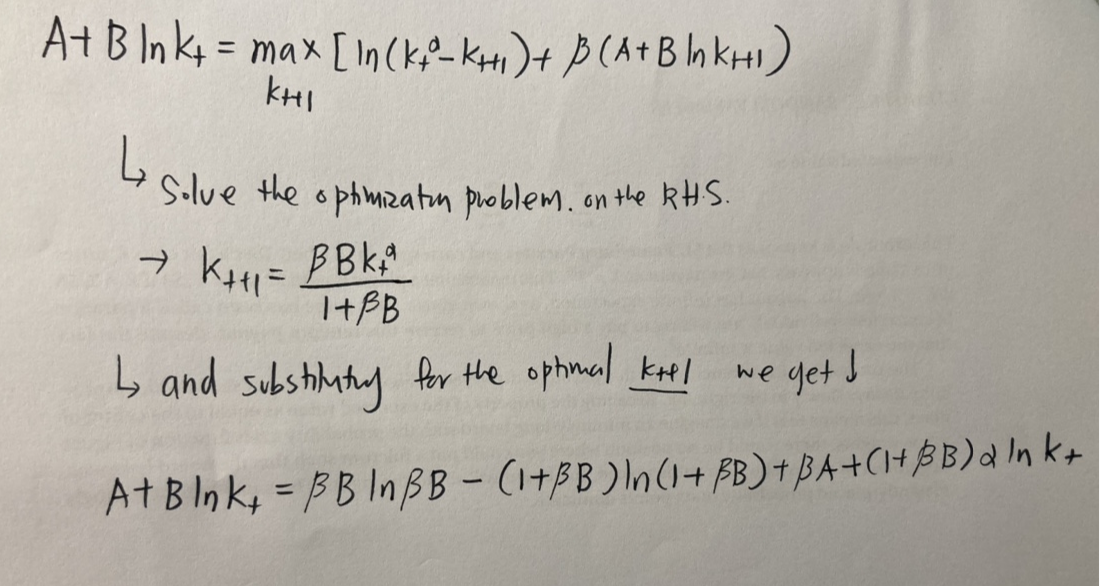 A + B ln kₜ = max [ ln(kₜᵅ - kₜ₊₁) + β(A + B ln kₜ₊₁)
kₜ₊₁
↳ Solve the optimization problem. on the RHS.
→ kₜ₊₁ = βBkₜᵅ / 1+βB
↳ and substituting for the optimal kₜ₊₁ we get ↓
A + B ln kₜ = βB ln βB - (1+βB) ln(1+βB) + βA + (1+βB) α ln kₜ